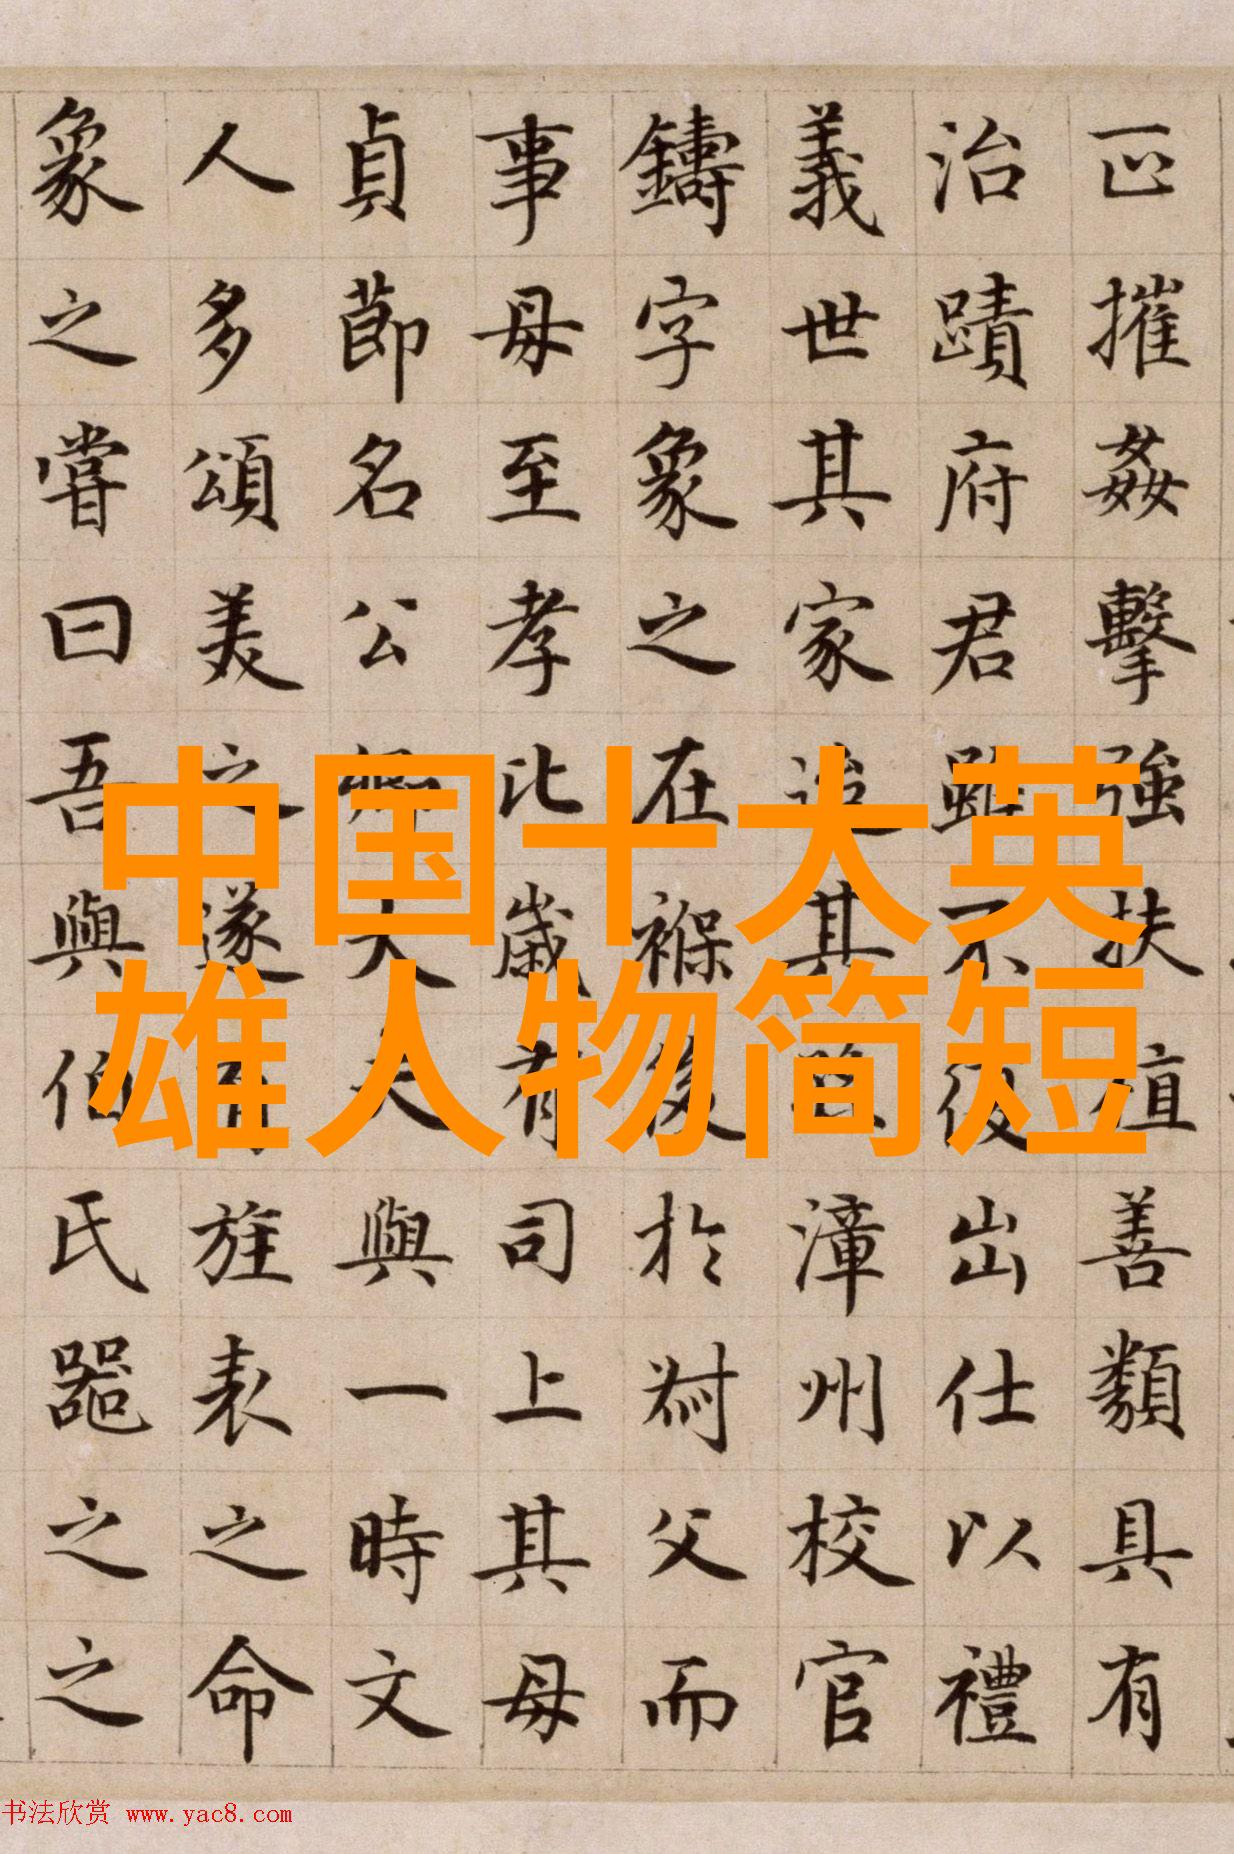 摧姦擊強扶植善類具有
治蹟府君雖不復出仕以禮
義世其家追其漳州校官
鑄字象之在褓後於父而
事母至孝比歲有司上其母
貞節名公卿大夫與一時文
人多頌美之遂有旌表之命
象之嘗曰吾與伯氏噐之之
中国十大英
雄人物简短
书法欣赏 www.yac8.com